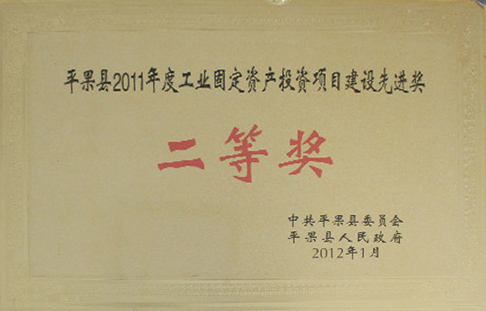 平果县2011年度工业固定资产投资项目建设先进奖
二等奖
中共平果县委员会
平果县人民政府
2012年1月